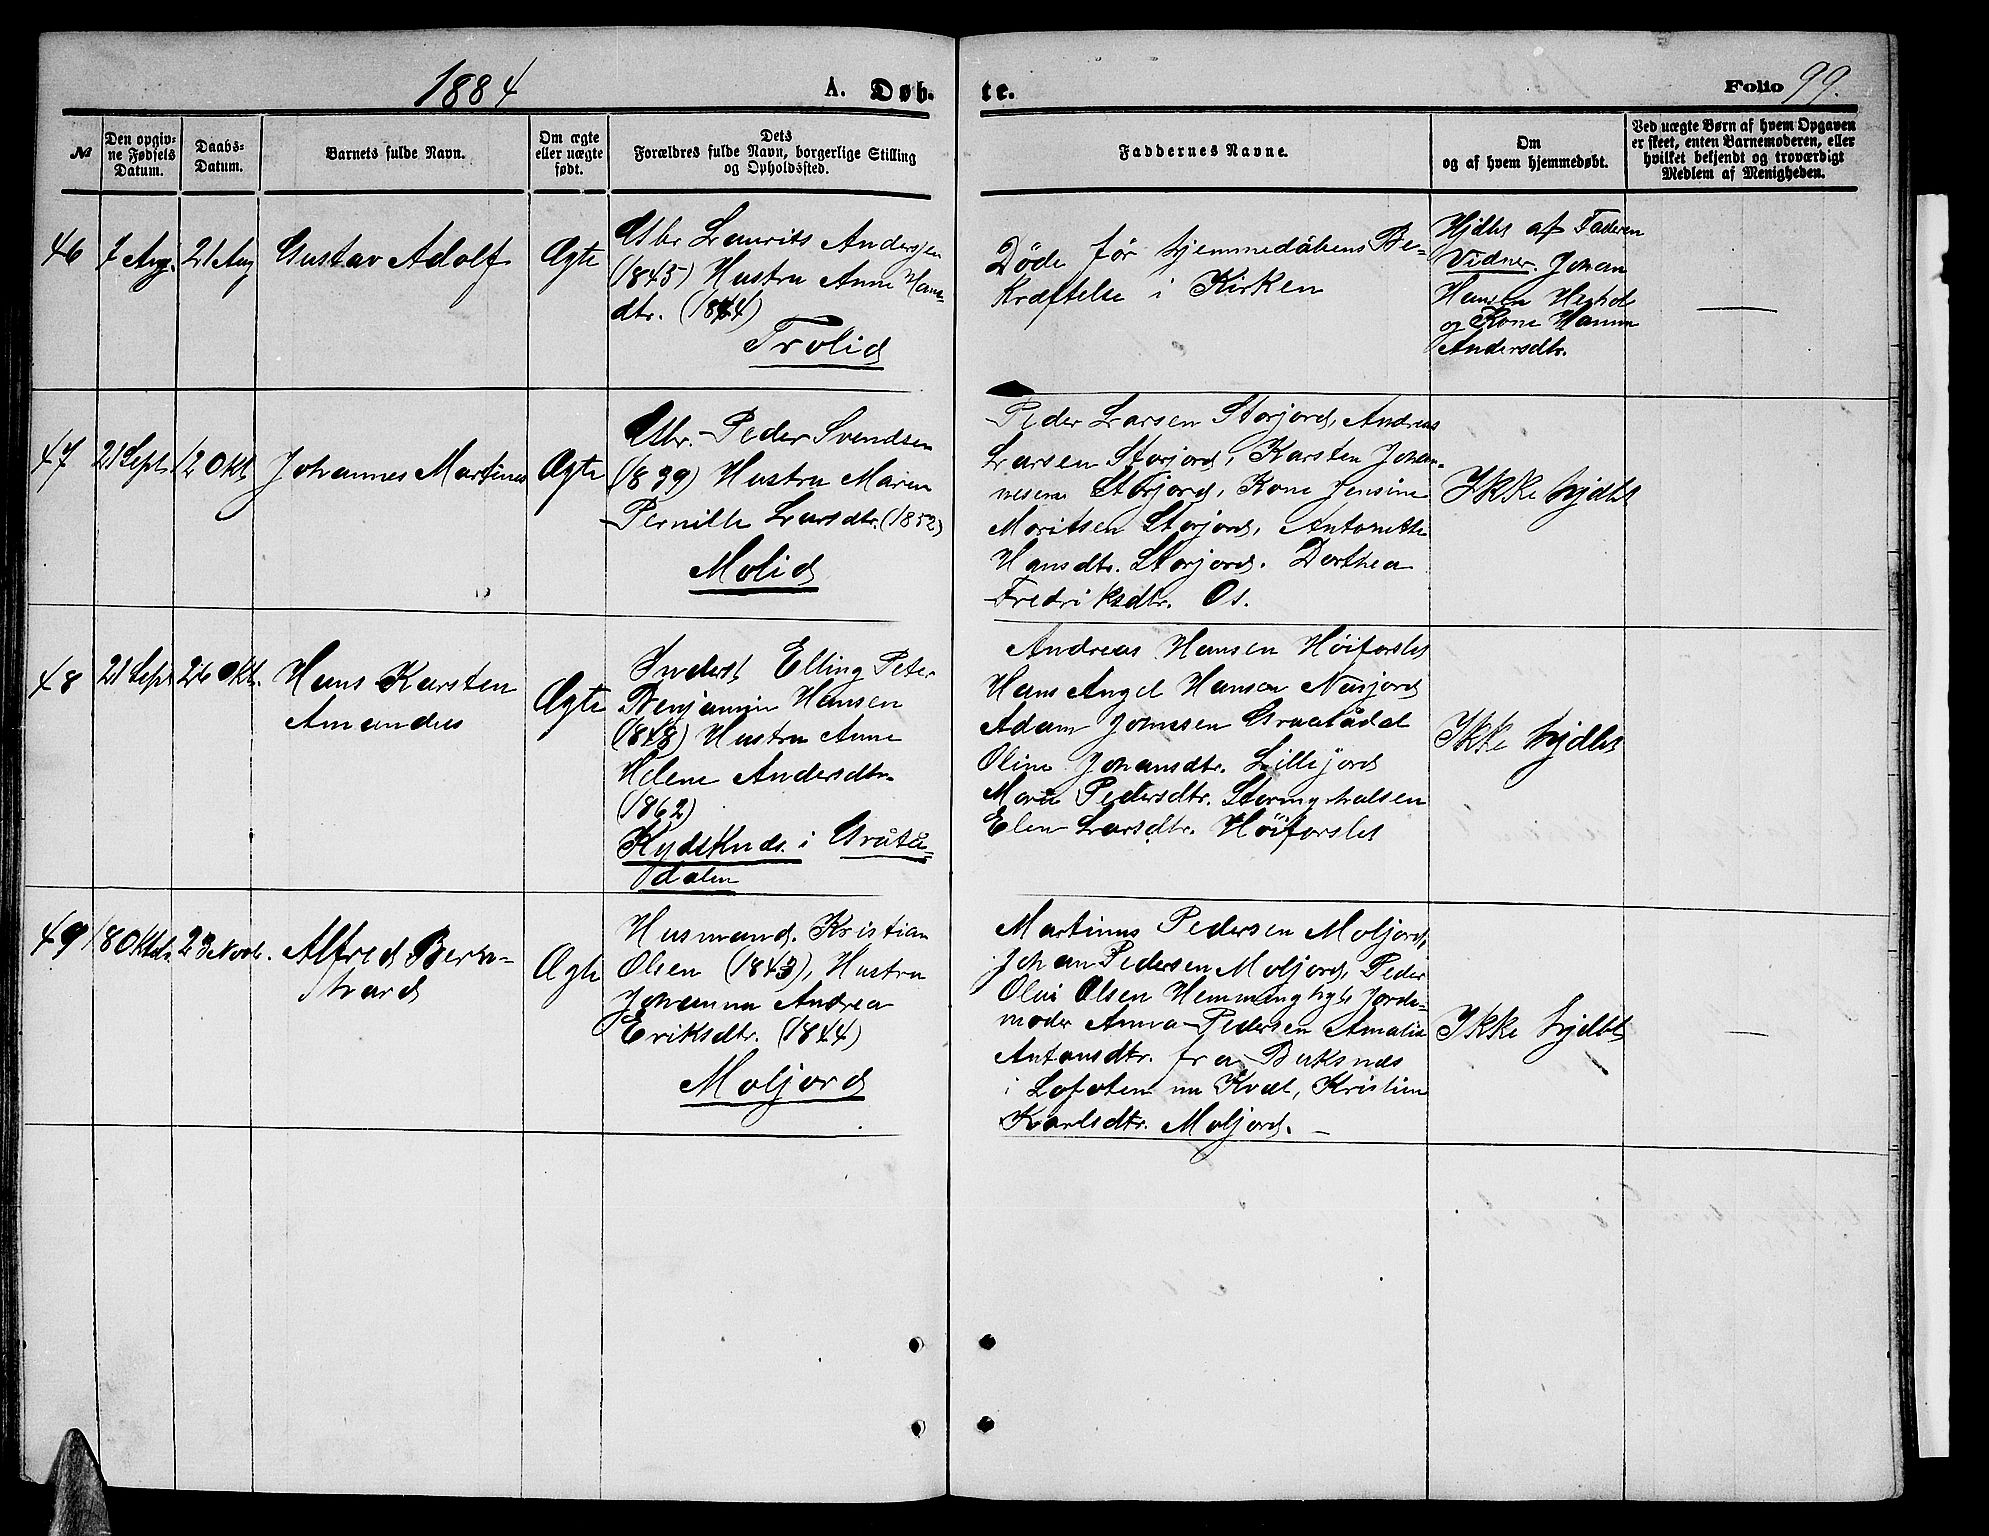 1884
A. Døb-
te.
Folio 99.
No
Den opgiv-
ne Fødsels
Datum.
Daabs-
Datum.
Barnets fulde Navn.
Om ægte
eller uægte
født.
Dets
Forældres fulde Navn, borgerlige Stilling
og Opholdssted.
Faddernes Navne.
Om
og af hvem hjemmedøbt.
Ved uægte Børn af hvem Opgaven
er skeet, enten Barnemoderen, eller
hvilket bekjendt og troværdigt
Medlem af Menigheden.
46
7 Aug.
21 Aug
Gustav Adolf
Ægte
Gbr Laurits Andersen
(1845) Hustru Anne Hans
dtr. (1844)
Trolid
Døde før hjemmedåbens Be-
kræftelse i Kirken
Hjdbt af Faderen
Vidner. Johan
Hansen
og Kone Hanna
Andersdtr.
—
47
21 Sept.
12 Okt.
Johannes Martinus
Ægte
Gbr. Peder Svendsen
(1839) Hustru Maren
Pernille Larsdtr. (1852)
Molid
Peder Larsen Storjord, Andreas
Larsen Storjord, Karsten Johan-
nesen Storjord, Kone Jensine
Moritsen Storjord, Antonette
Hansdtr. Storjord. Dorthea
Fredriksdtr. Os.
Ikke hjdbt
48
21 Sept
26 Okt.
Hans Karsten
Amandus
Ægte
Inderst Elling Peter
Benjamin Hansen
(1848) Hustru Anne
Helene Andersdtr.
(1862)
i Gråtå-
dalen
Andreas Hansen Höiforslet
Hans Angel Hansen Nesjord
Adam Johnsen Graatådal
Oline Johansdtr. Lillejord
Maria Pedersdtr.
Elen Larsdtr. Höiforslet
Ikke hjdbt
49
18 Oktbr.
23 Novb.
Alfred Bern-
hard
Ægte
Husmand. Kristian
Olsen (1843), Hustru
Johanna Andrea
Eriksdtr. (1844)
Moljord
Martinus Pedersen Moljord,
Johan Pedersen Moljord, Peder
Olai Olsen Jorde-
moder Anna Pedersen Amalia
Antonsdtr. fra Buksnes
i Lofoten nu Kvæl, Kristine
Karlsdtr. Moljord. —
Ikke hjdbt
—